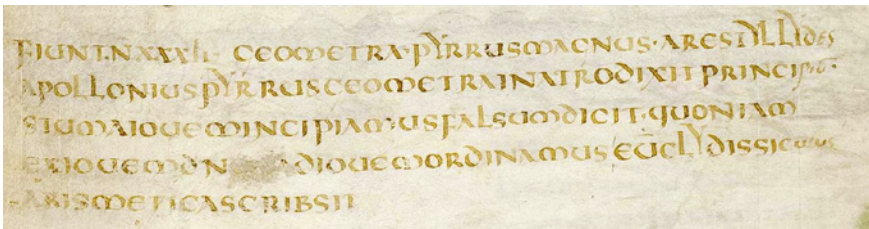 FIUNT·N·XXXII· GEOMETRA·PYRRUSMAGNUS·ARESTYLLIDES
APOLLONIUSPYRRUSGEOMETRAINATRODIXITPRINCIPIU·
SIUMAIOUEMINCIPIAMUSFALSUMDICIT·QUONIAM
EXIOUEMDN ADIOUEMORDINAMUS EUCLYDISSICULUS
ARISMETICASCRIBSIT